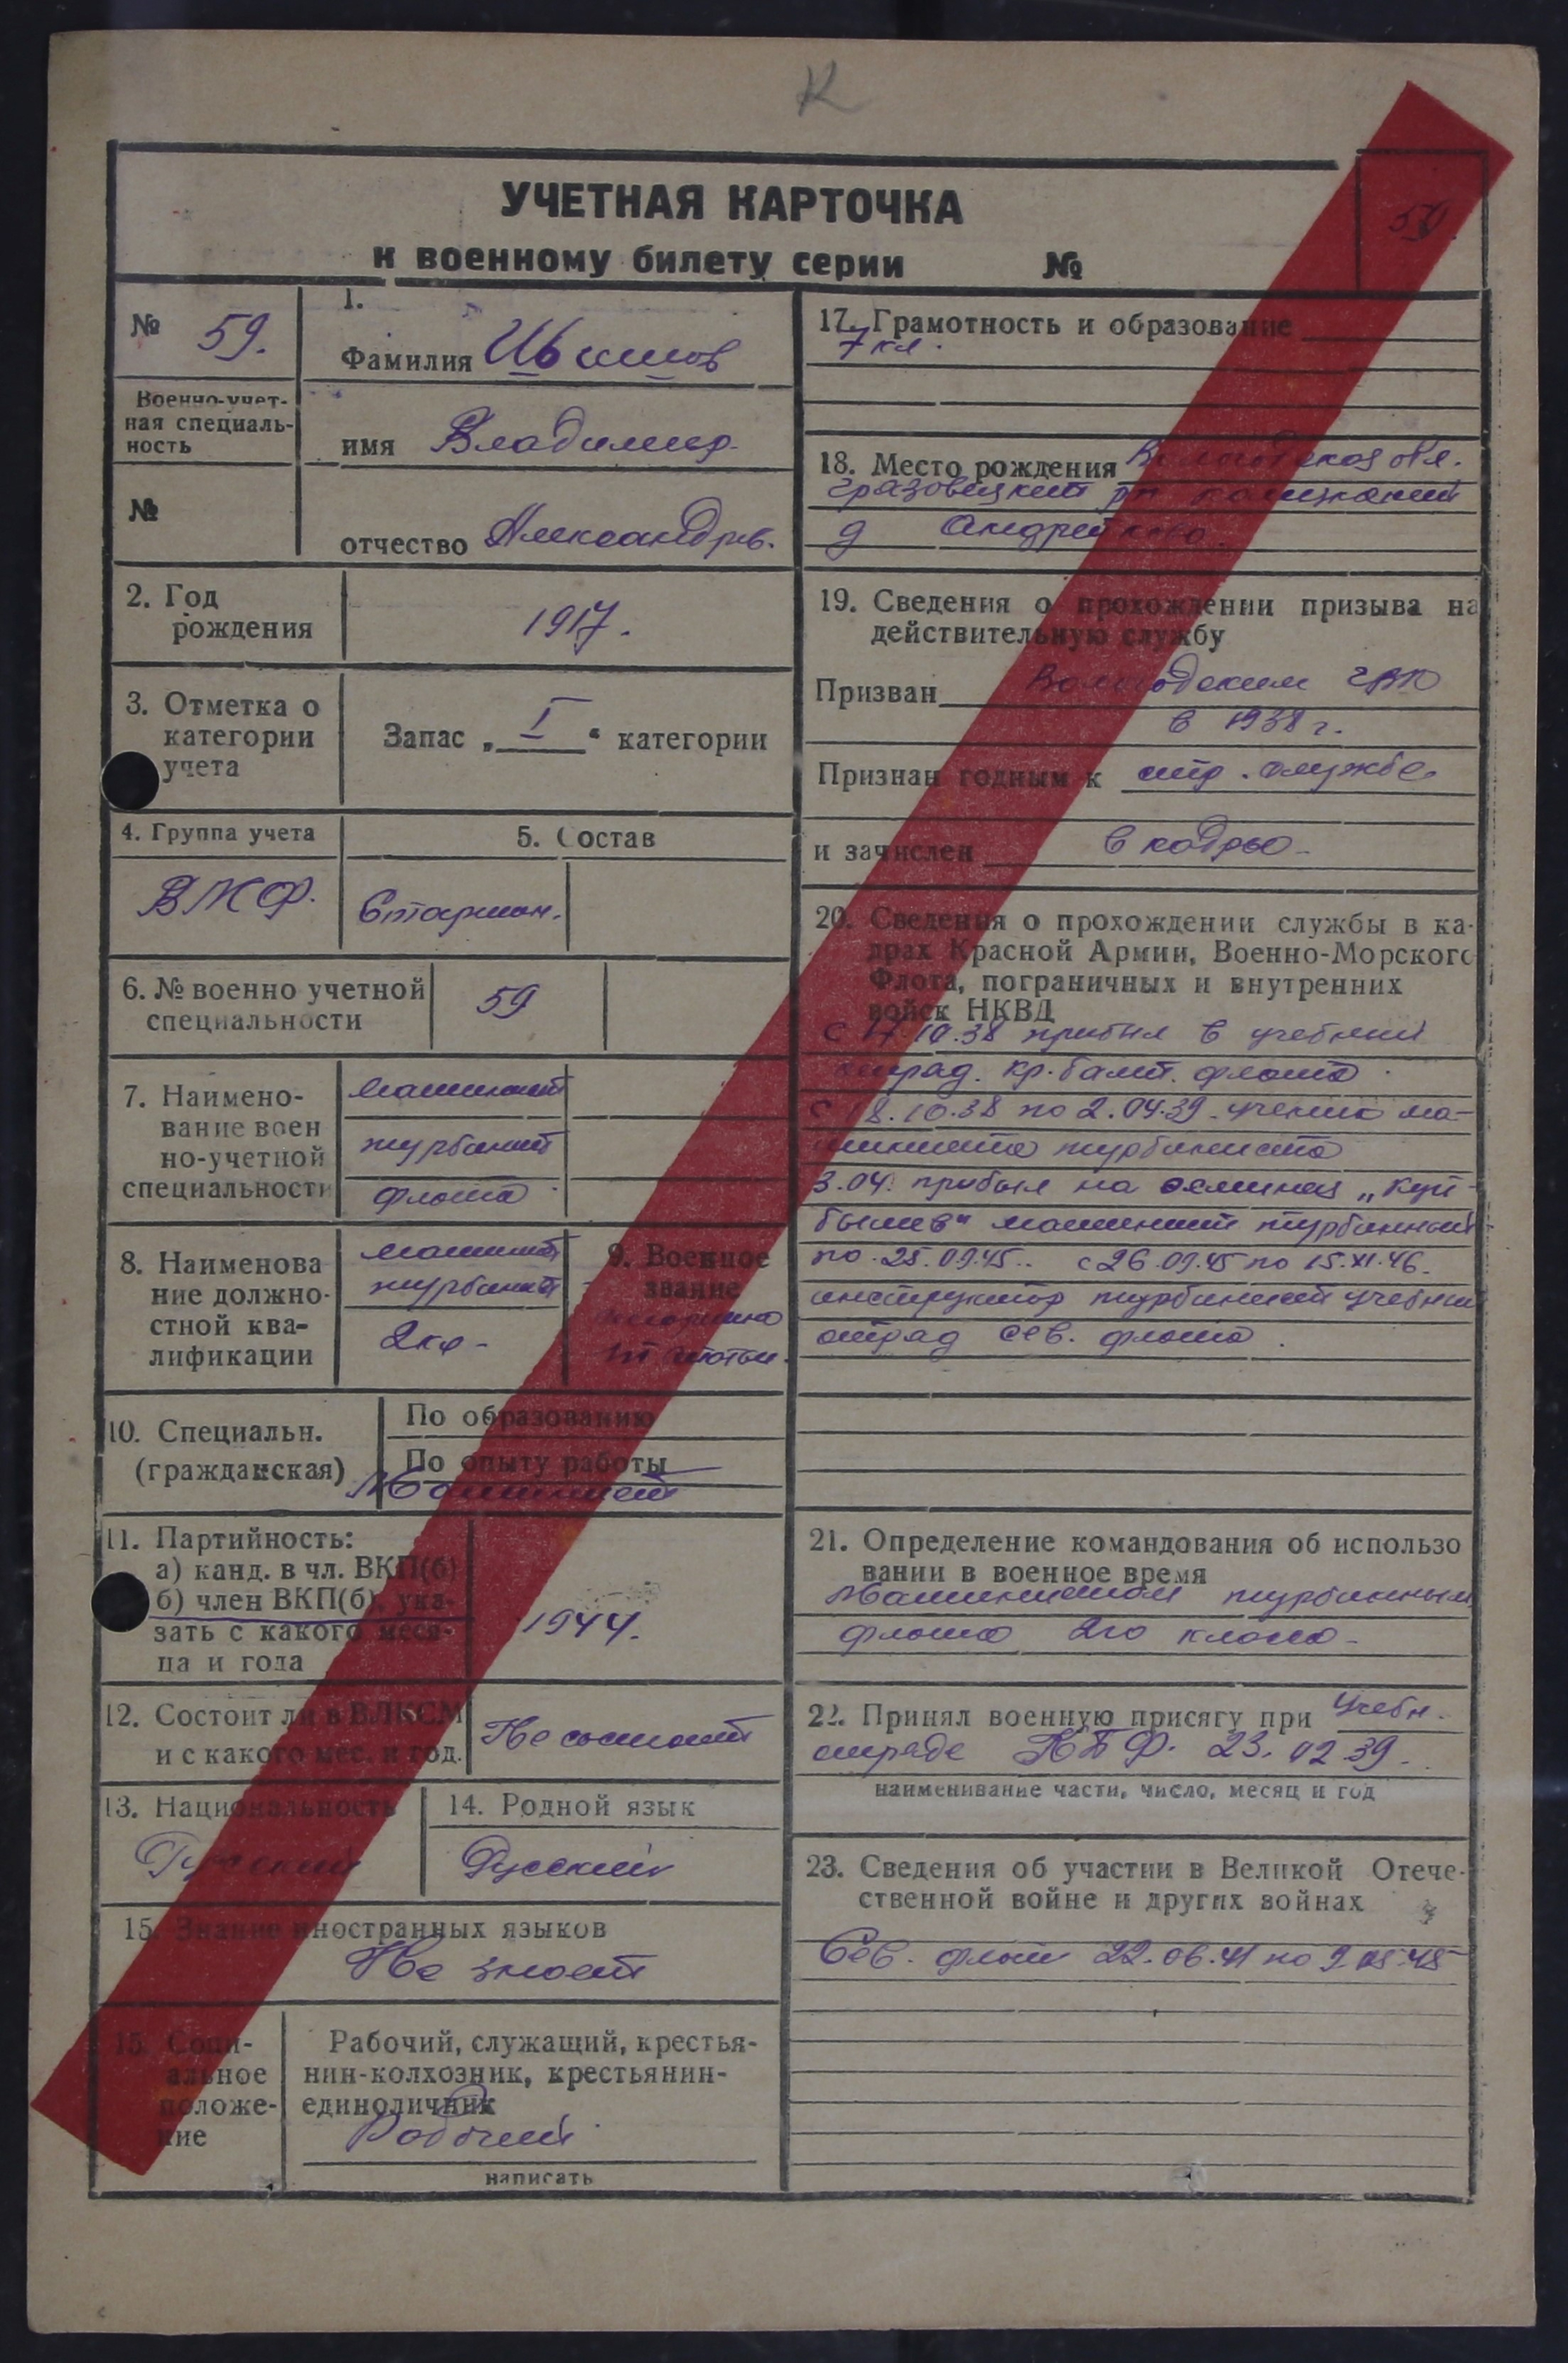 К
УЧЕТНАЯ КАРТОЧКА
к военному билету серии №
50
№ 59.
Военно-учет-
ная специаль-
ность
№
1.
Фамилия Ившов
имя Владимир
отчество Александров.
2. Год
рождения
1917.
3. Отметка о
категории
учета
Запас „ I “ категории
4. Группа учета
ВМФ.
5. Состав
Старшин.
6. № военно учетной
специальности
59
7. Наимено-
вание воен
но-учетной
специальности
машинист
турбинист
флота
8. Наименова
ние должно-
стной ква-
лификации
машинист
турбинист
2 кл -
9. Военное
звание
старшина
статьи.
10. Специальн.
(гражданская)
По образованию
По опыту работы
Машинист
11. Партийность:
а) канд. в чл. ВКП(б)
б) член ВКП(б), ука-
зать с какого меся-
ца и года
1944.
12. Состоит ли в ВЛКСМ
и с какого мес. и год.
Не состоит
13. Национальность
Русский
14. Родной язык
Русский
15. Знание иностранных языков
Не знает
15. Соци-
альное
положе-
ние
Рабочий, служащий, крестья-
нин-колхозник, крестьянин-
единоличник
Рабочий
написать
17. Грамотность и образование
7 кл.
18. Место рождения Вологодская обл.
грязовецкий рн
д Андрейково.
19. Сведения о прохождении призыва на
действительную службу
Призван Вологодским ГВК
в 1938 г.
Признан годным к стр. службе
и зачислен в кадры
20. Сведения о прохождении службы в ка-
драх Красной Армии, Военно-Морского
Флота, пограничных и внутренних
войск НКВД
с 17.10.38 прибыл в учебный
отряд. Кр. балт. флота.
с 18.10.38 по 2.04.39 - ученик ма-
шиниста турбиниста
3.04. прибыл на эсминец „Куй-
бышев“ машинист турбинный
по 25.09.45.. с 26.09.45 по 15.XI.46.
инструктор турбинист учебный
отряд сев. флота.
21. Определение командования об использо
вании в военное время
Машинистом турбинным
флота 2го класса -
22. Принял военную присягу при Учебн.
отряде КБФ. 23.02.39.
наименивание части, число, месяц и год
23. Сведения об участии в Великой Отече-
ственной войне и других войнах
Сев. флот 22.06.41 по 9.05.45